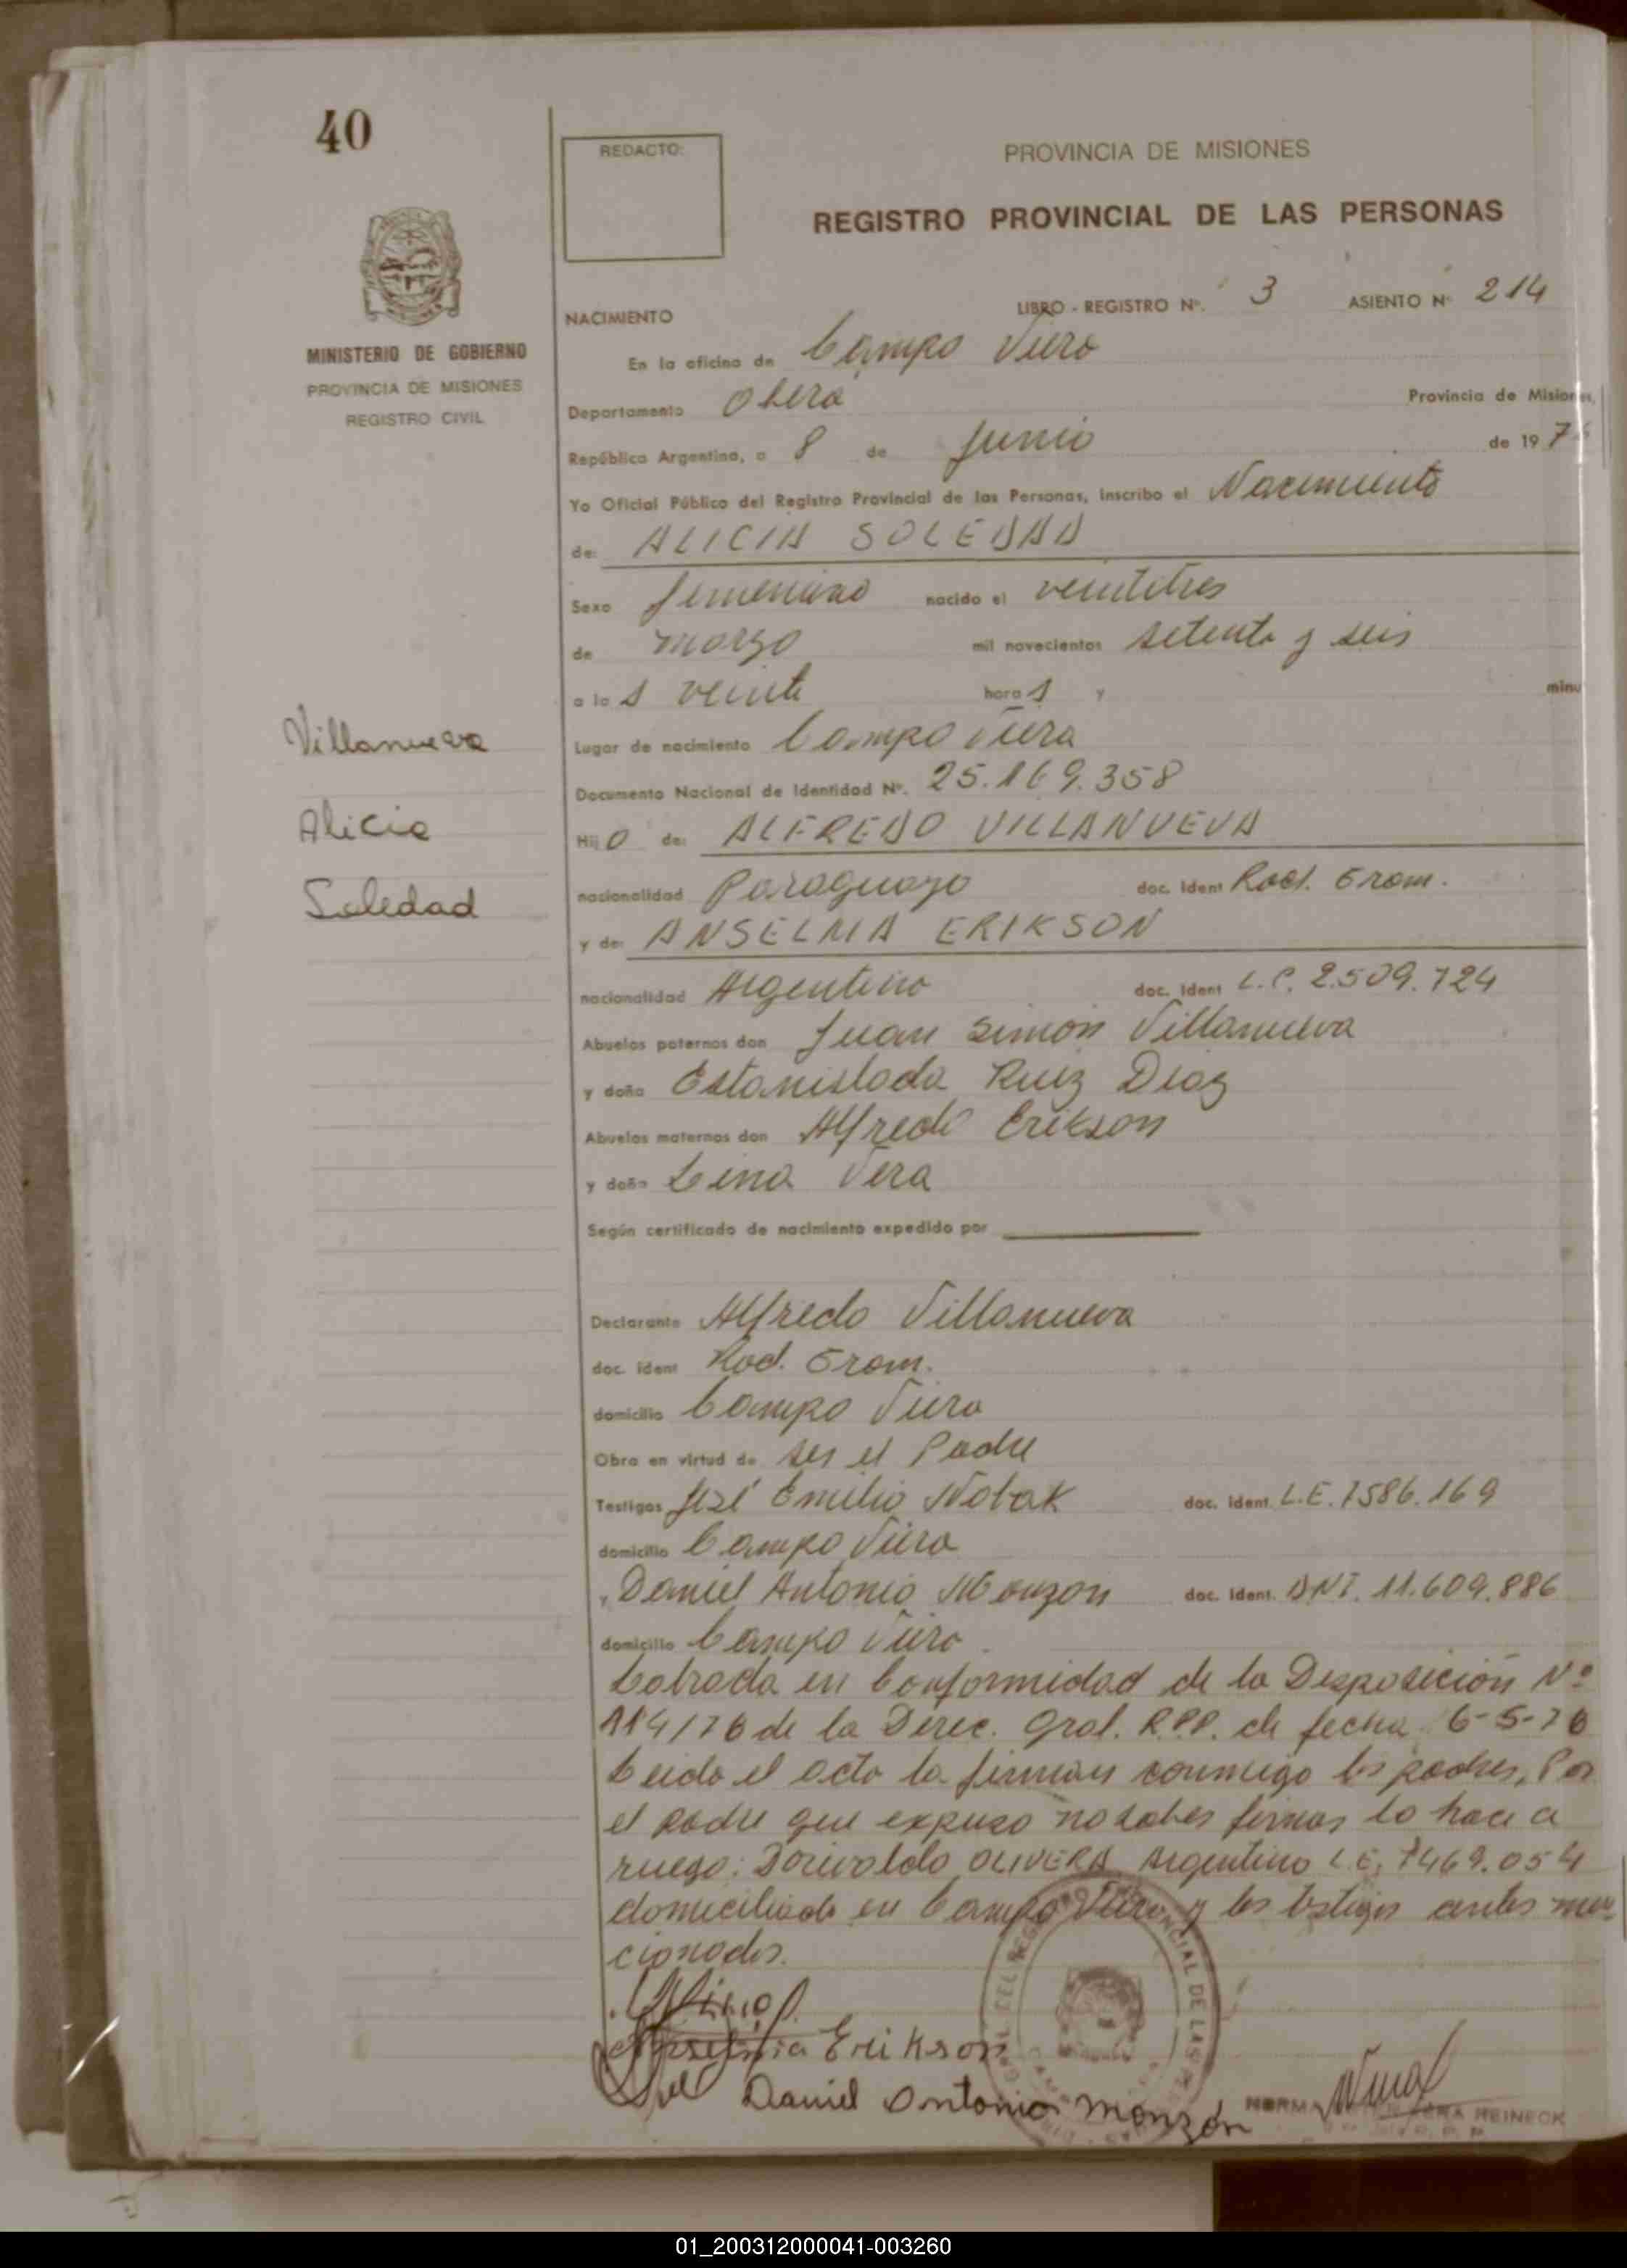 40
REDACTO:
PROVINCIA DE MISIONES
REGISTRO PROVINCIAL DE LAS PERSONAS
LIBRO - REGISTRO Nº. 3 ASIENTO Nº 214
NACIMIENTO
MINISTERIO DE GOBIERNO
PROVINCIA DE MISIONES
REGISTRO CIVIL
En la oficina de Campo Viera
Departamento Obera Provincia de Misiones,
República Argentina, a 8 de Junio de 1976
Yo Oficial Público del Registro Provincial de las Personas, inscribo el Nacimiento
de: ALICIA SOLEDAD
Sexo femenino nacido el veintitres
de marzo mil novecientos setenta y seis
a las veinte horas y minu
Lugar de nacimiento Campo Viera
Documento Nacional de Identidad Nº. 25.169.358
Hijo de: ALFREDO VILLANUEVA
nacionalidad Paraguayo doc. Ident Rad.
y de: ANSELMA ERIKSON
nacionalidad Argentina doc. Ident L.C. 2.509.724
Abuelos paternos don Juan Simón Villanueva
y doña Estanislada Ruiz Diaz
Abuelos maternos don Alfredo Erikson
y doña Lina Vera
Según certificado de nacimiento expedido por
Villanueva
Alicia
Soledad
Declarante Alfredo Villanueva
doc. ident Rad.
domicilio Campo Viera
Obra en virtud de ser el Padre
Testigos José Emilio Nobak doc. Ident. L.E. 7586.169
domicilio Campo Viera
y Daniel Antonio Monzon doc. Ident. DNI. 11.609.886
domicilio Campo Viera
Labrada en Conformidad de la Disposición Nº
114/76 de la Direc. Gral. R.P.P. de fecha 6-5-76
Leida el acta la firman conmigo los padres, Por
el padre que expuso no saber firmar lo hace a
ruego: Dorivaldo OLIVERA Argentino L.E. 7469.054
domiciliado en Campo Viera y los testigos antes men-
cionados.
Anselmia Erikson
Daniel Antonio Monzón
NORMA HEINECK
01_200312000041-003260